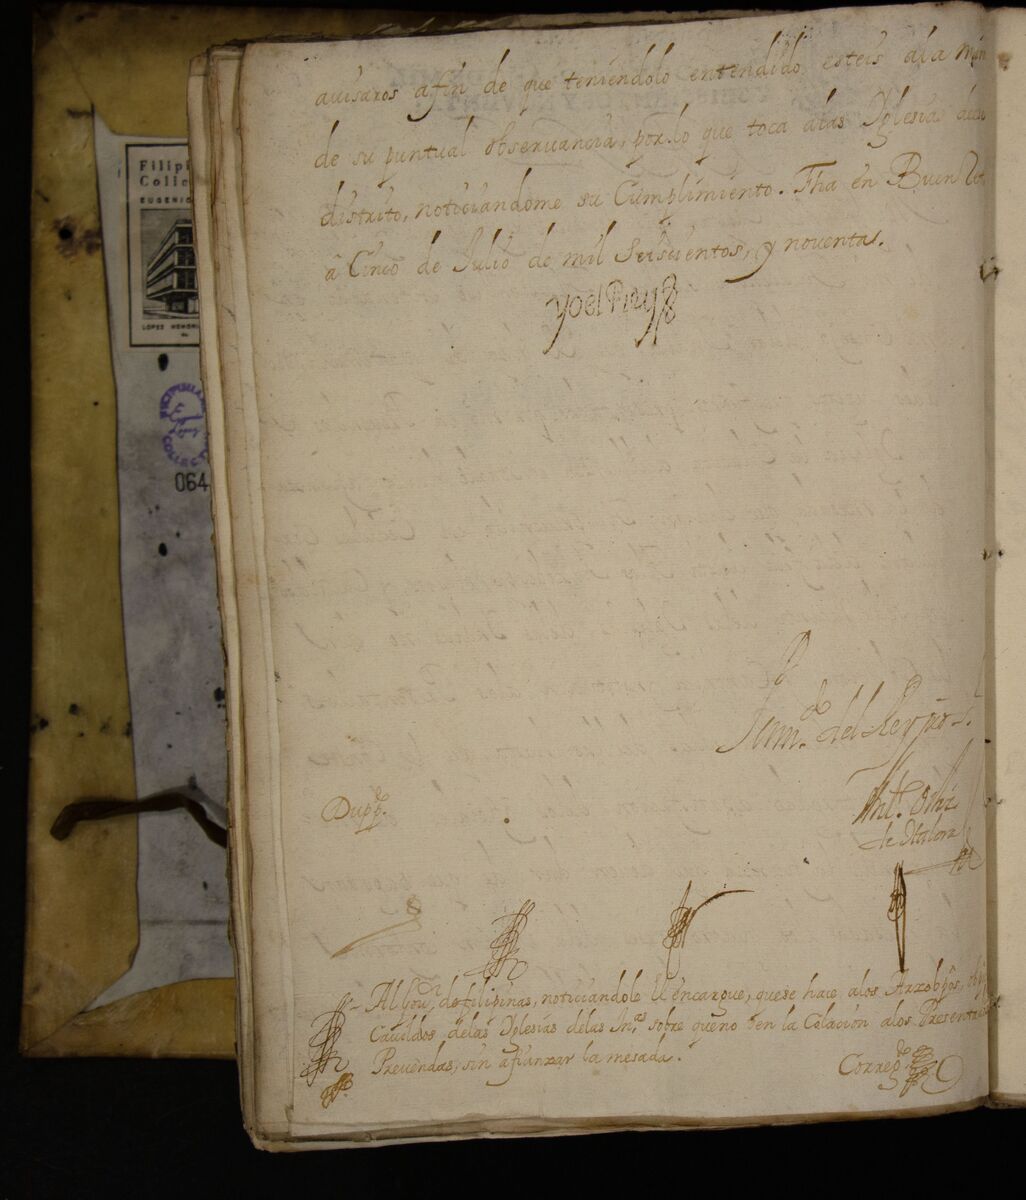 auisaros afin de que teniendolo entendido esteis ala mira
de su puntual obseruancia, porlo que toca alas Yglesias dese
distrito, noticiandome su Cumplimiento. Fha en Buen Ret.
a Cinco de Julio de mil Seiscientos, y nouenta.
Yo el Rey
Por mdo. del Rey nro Sr.
Dupp.do
Antº. Ortiz
de Otalora
Al Gour. de filipinas, noticiandole el encargue, quese hace alos Arzobpos, Obpos
Cauildos delas Yglesias delas Ins. sobre queno den la Colacion alos Presentados
Preuendas, sin afianzar la mesada.
Correg.do
Filipi
Collec
EUGENIO
LOPEZ MEMORI
064